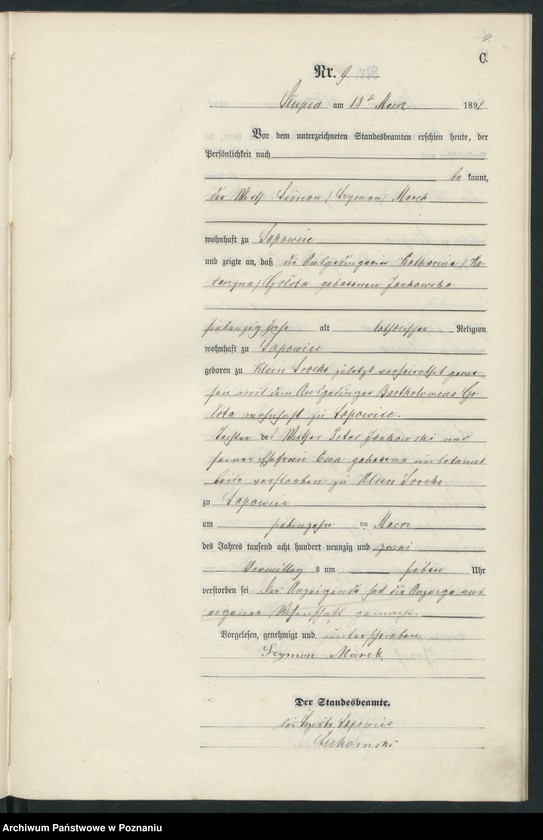 C.
Nr. 9
Stupia am 18t März 1892
Vor dem unterzeichneten Standesbeamten erschien heute, der
Persönlichkeit nach
be kannt,
der Wirth Simon /Szymon/ Marek
wohnhaft zu Sapowice
und zeigte an, daß die Ausgedingerin Katharina /Ka-
tarzyna/ Golota geborenen Jankowska
siebenzig Jahre alt katholischer Religion
wohnhaft zu Sapowice
geboren zu Klein Srocko zuletzt verheirathet gewe-
sen mit dem Ausgedinger Bartholomeus Go-
lota wohnhaft zu Sapowice.
Tochter des Wirthes Peter Jankowski und
seiner Ehefrau Ewa geborene unbekannt
beide verstorben zu Klein Srocko
zu Sapowice
am siebenzehn ten März
des Jahres tausend acht hundert neunzig und zwei
Vormittag s um sieben Uhr
verstorben sei Der Anzeigende hat die Anzeige aus
eigener Wissenschaft gemacht.
Vorgelesen, genehmigt und unterschrieben
Szymon Marek,
Der Standesbeamte.
Sapowice
Archiwum Państwowe w Poznaniu